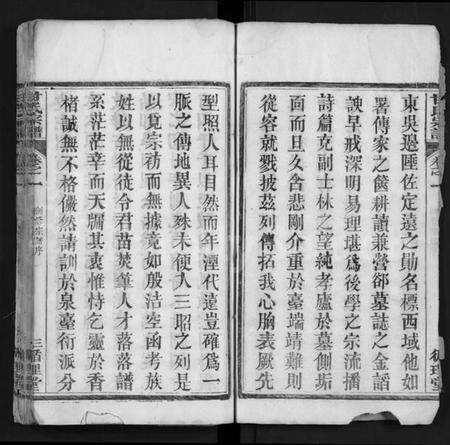 東吳過匯佐定遠之勛名標西域他如
署傳家之篋耕讀兼營邰墓誌之金謟
諛早戒深明易理堪爲後學之宗流播
詩篇克副士林之望純孝廬於墓側垢
面而且久含悲剛介重於臺端靖難則
從容就戮披茲列傳拓我心胸表厥先
型照人耳目然而年湮代遠豈確爲一
脈之傳地異人殊未便入三昭之列是
以覓宗祊而無據竟如殷沽空函考族
姓以無從徒令君苗焚筆人才落落譜
系茫茫幸而天牖其衷惟恃乞靈於香
楮誠無不格儼然請訓於泉臺衍派分
卷之一